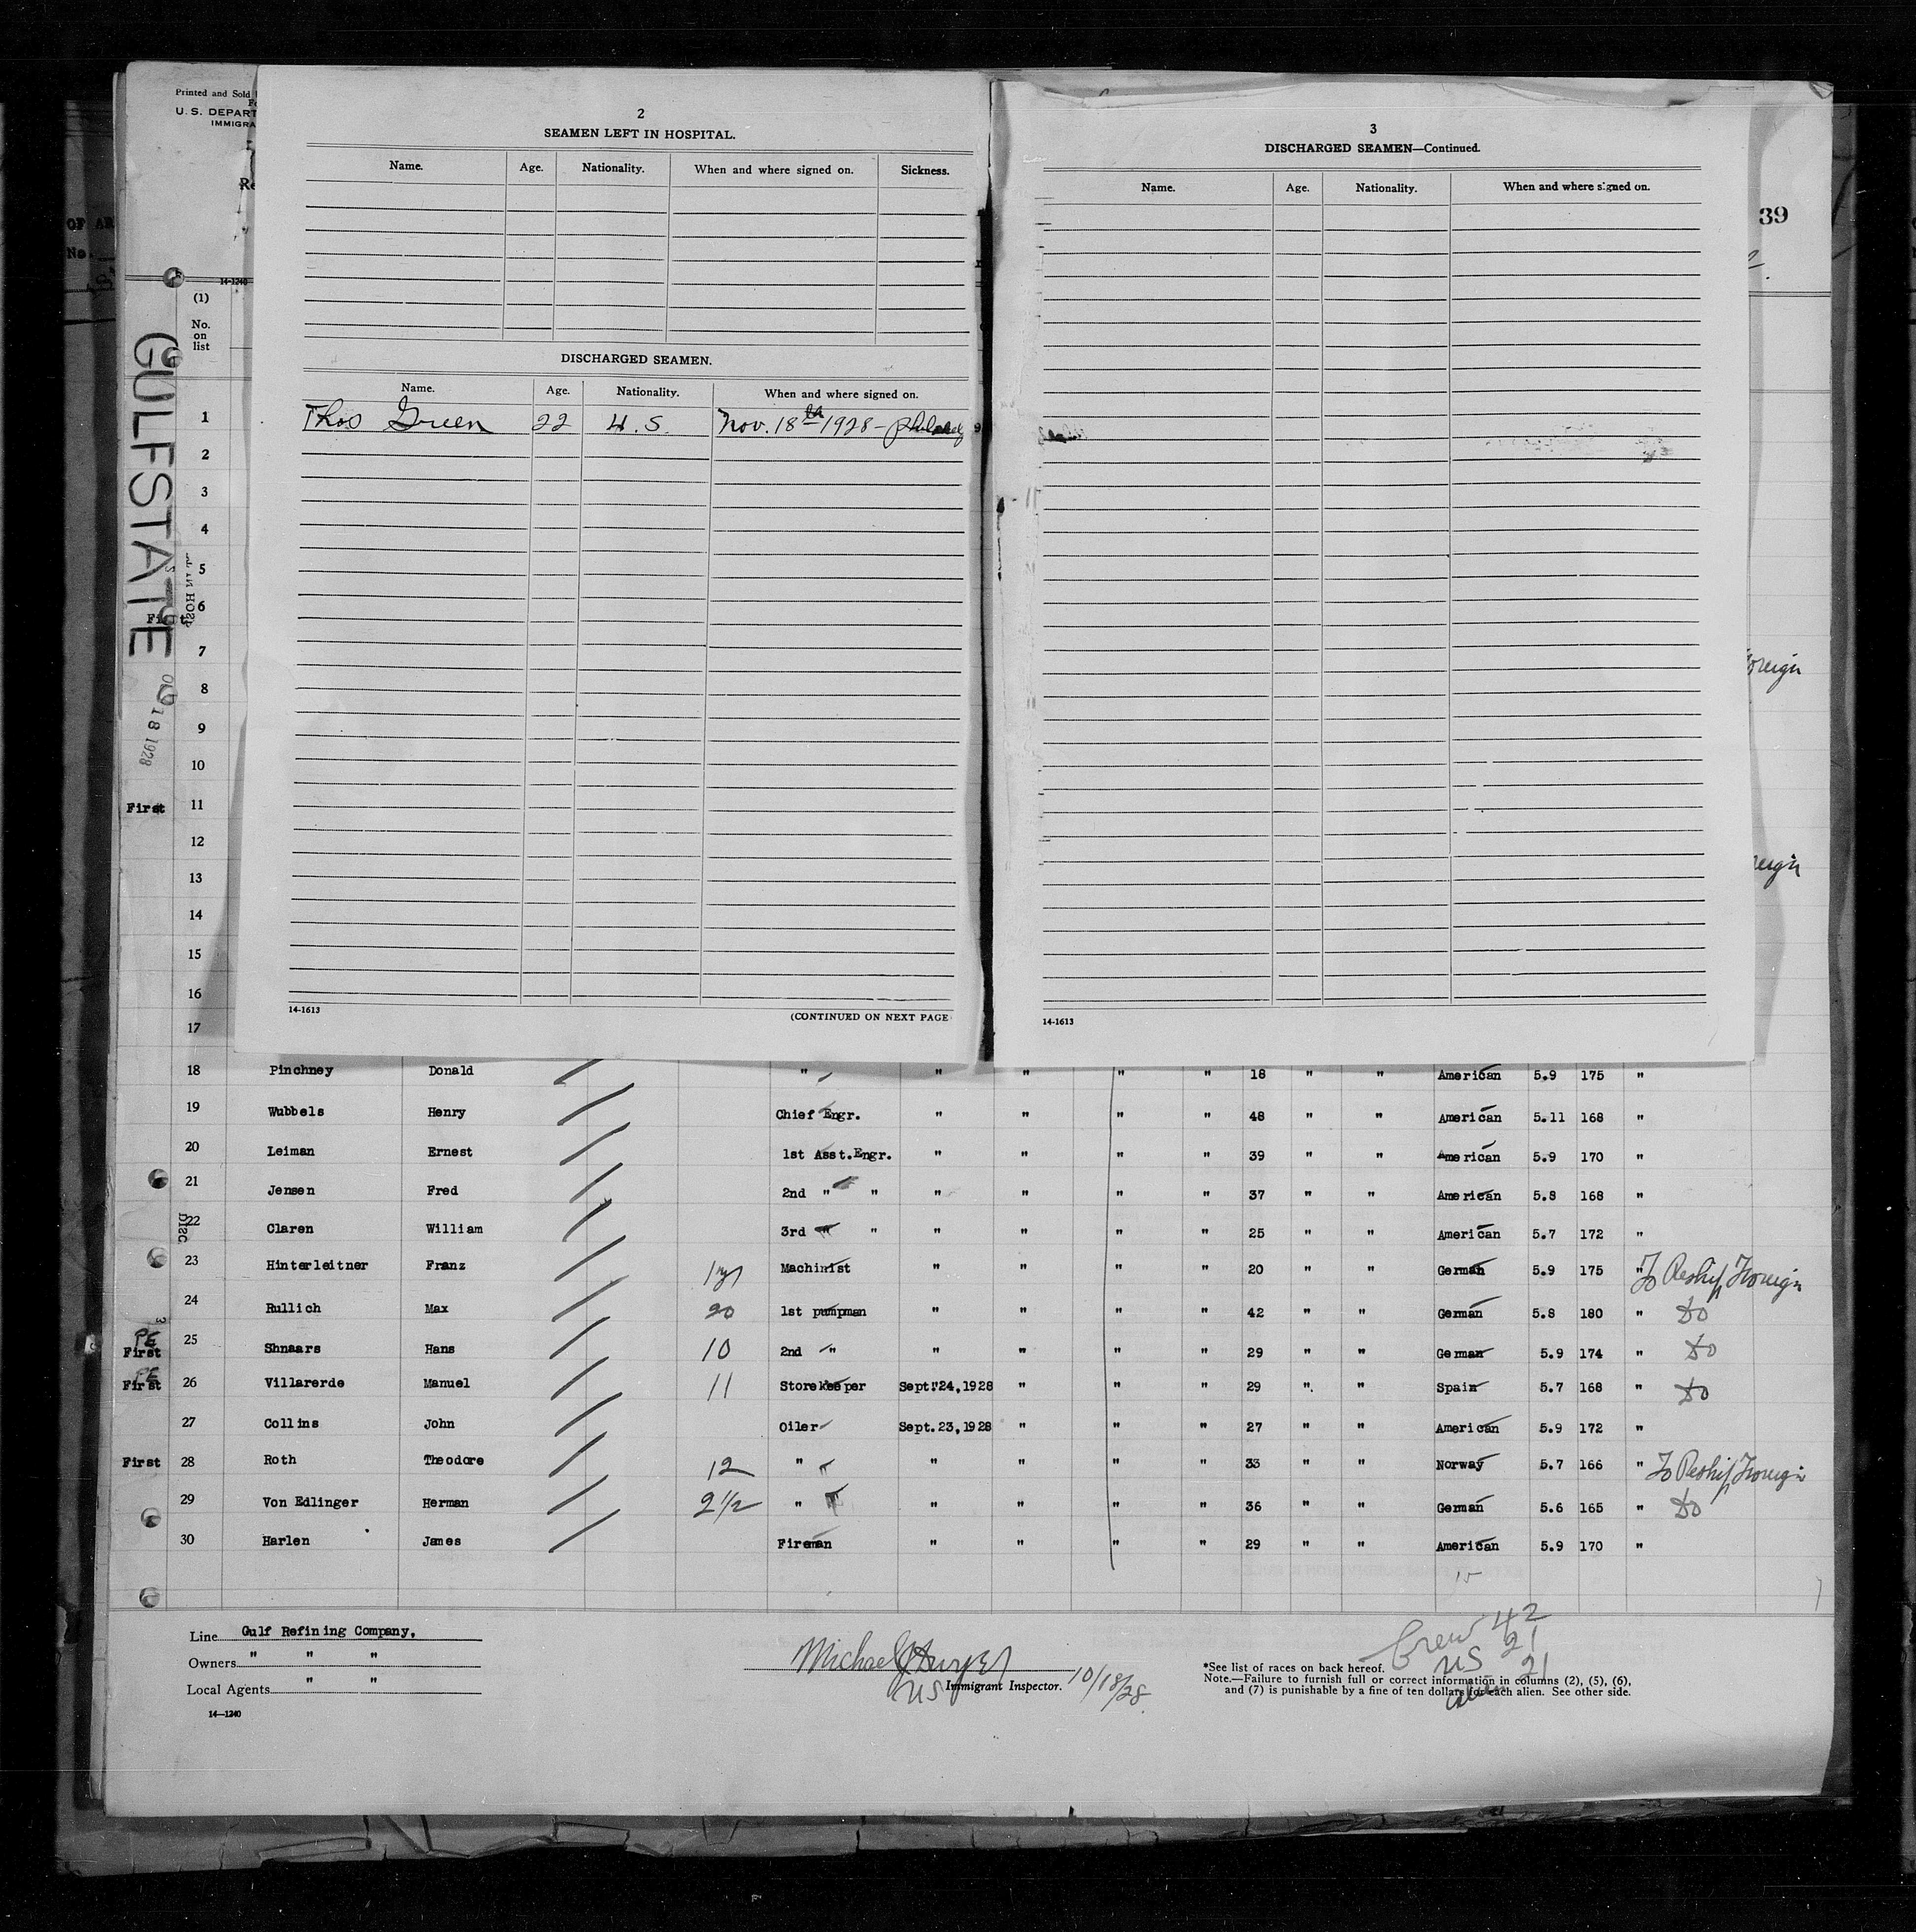 Printed and Sold
U.S. DEPART
IMMIGRA
OF AR
No.
14-1240
(1)
No.
on
list
GULFSTATE
18 1928
39
2
SEAMEN LEFT IN HOSPITAL.
Name. Age. Nationality. When and where signed on. Sickness.
DISCHARGED SEAMEN.
Name. Age. Nationality. When and where signed on.
Thos Green 22 U.S. Nov. 18th 1928-
14-1613
(CONTINUED ON NEXT PAGE
3
DISCHARGED SEAMEN—Continued.
Name. Age. Nationality. When and where signed on.
14-1613
1
2
3
4
5
6
First
7
8
9
10
First 11
12
13
14
15
16
17
18 Pinchney Donald " " " " " 18 " " American 5.9 175 "
19 Wubbels Henry Chief Engr. " " " " 48 " " American 5.11 168 "
20 Leiman Ernest 1st Asst.Engr. " " " " 39 " " American 5.9 170 "
21 Jensen Fred 2nd " " " " " " 37 " " American 5.8 168 "
DISC. 22 Claren William 3rd " " " " " " 25 " " American 5.7 172 "
23 Hinterleitner Franz Machinist " " " " 20 " " German 5.9 175 " To Reship Foreign
24 Rullich Max 20 1st pumpman " " " " 42 " " German 5.8 180 " Do
PE First 25 Shnaars Hans 10 2nd " " " " " 29 " " German 5.9 174 " Do
PE First 26 Villarerde Manuel 11 Storekeeper Sept.24,1928 " " " 29 " " Spain 5.7 168 " Do
27 Collins John Oiler Sept.23,1928 " " " 27 " " American 5.9 172 "
First 28 Roth Theodore 12 " " " " " 33 " " Norway 5.7 166 " To Reship Foreign
29 Von Edlinger Herman 2 1/2 " " " " " 36 " " German 5.6 165 " Do
30 Harlen James Fireman " " " " 29 " " American 5.9 170 "
Line Gulf Refining Company,
Owners " " "
Local Agents " "
14—1240
Michael
US Immigrant Inspector. 10/18/28
Crew 42
US 21
alien 21
*See list of races on back hereof.
Note.—Failure to furnish full or correct information in columns (2), (5), (6),
and (7) is punishable by a fine of ten dollars for each alien. See other side.